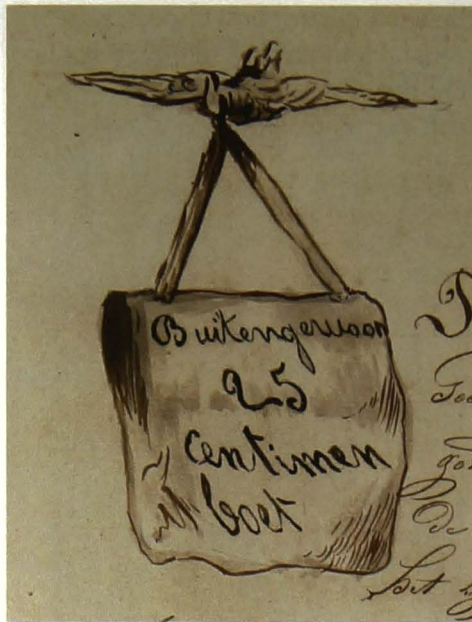 Buitengewoon
25
centimen
boet